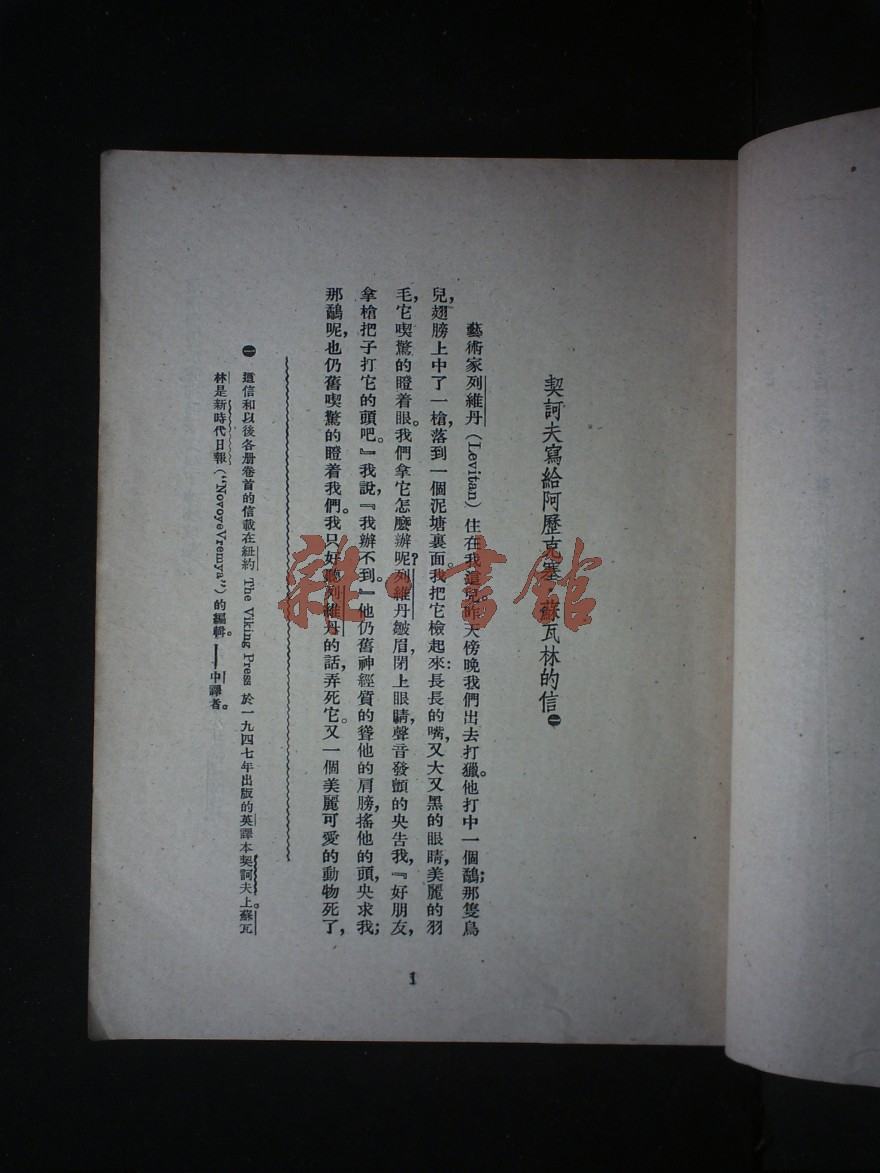 契訶夫寫給阿歷克塞·蘇瓦林的信㊀
藝術家列維丹(Levitan)住在我這兒。昨天傍晚我們出去打獵。他打中一個鷸;那隻鳥
兒,翅膀上中了一槍,落到一個泥塘裏面。我把它檢起來:長長的嘴,又大又黑的眼睛,美麗的羽
毛,它喫驚的瞪着眼。我們拿它怎麼辦呢?列維丹皺眉,閉上眼睛,聲音發顫的央告我,『好朋友,
拿槍把子打它的頭吧。』我說,『我辦不到。』他仍舊神經質的聳他的肩膀,搖他的頭,央求我;
那鷸呢,也仍舊喫驚的瞪着我們。我只好聽列維丹的話,弄死它。又一個美麗可愛的動物死了,
㊀ 這信和以後各册卷首的信載在紐約 The Viking Press 於一九四七年出版的英譯本契訶夫上。蘇瓦
林是新時代日報("NovoyeVremya")的編輯。——中譯者。
1
雜·書館